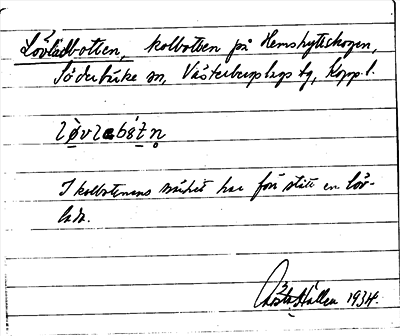 Lövladbotten, kolbotten på Hemshyttskogen,
Söderbärke sn, Västerbergslags tg, Kopp.l.
I kolbottnens närhet har förr stått en löv-
lada.
Hallen 1934.